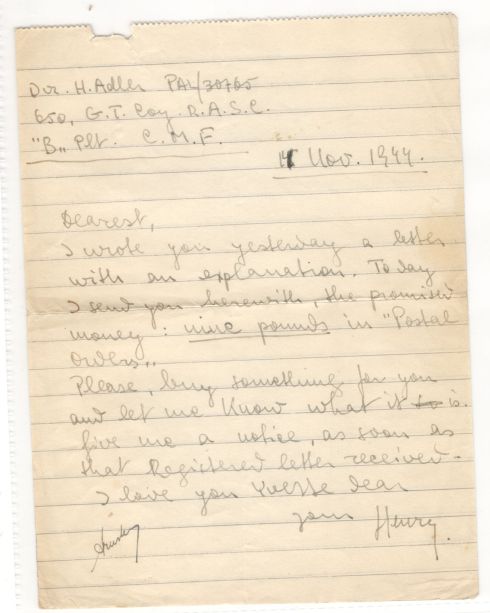 Dvr. H. Adler PAL/30765
650, G.T. Coy R.A.S.C.
"B„ Plt. C.M.F.
Nov. 1944.
Dearest,
I wrote you yesterday a letter
with an explanation. To day
I send you herewith, the promised
money: nine pounds in "Postal
Orders„
Please, buy something for you
and let me Know what it is.
Give me a notice, as soon as
that Registered letter received -
I love you Yvette dear
your Henry.